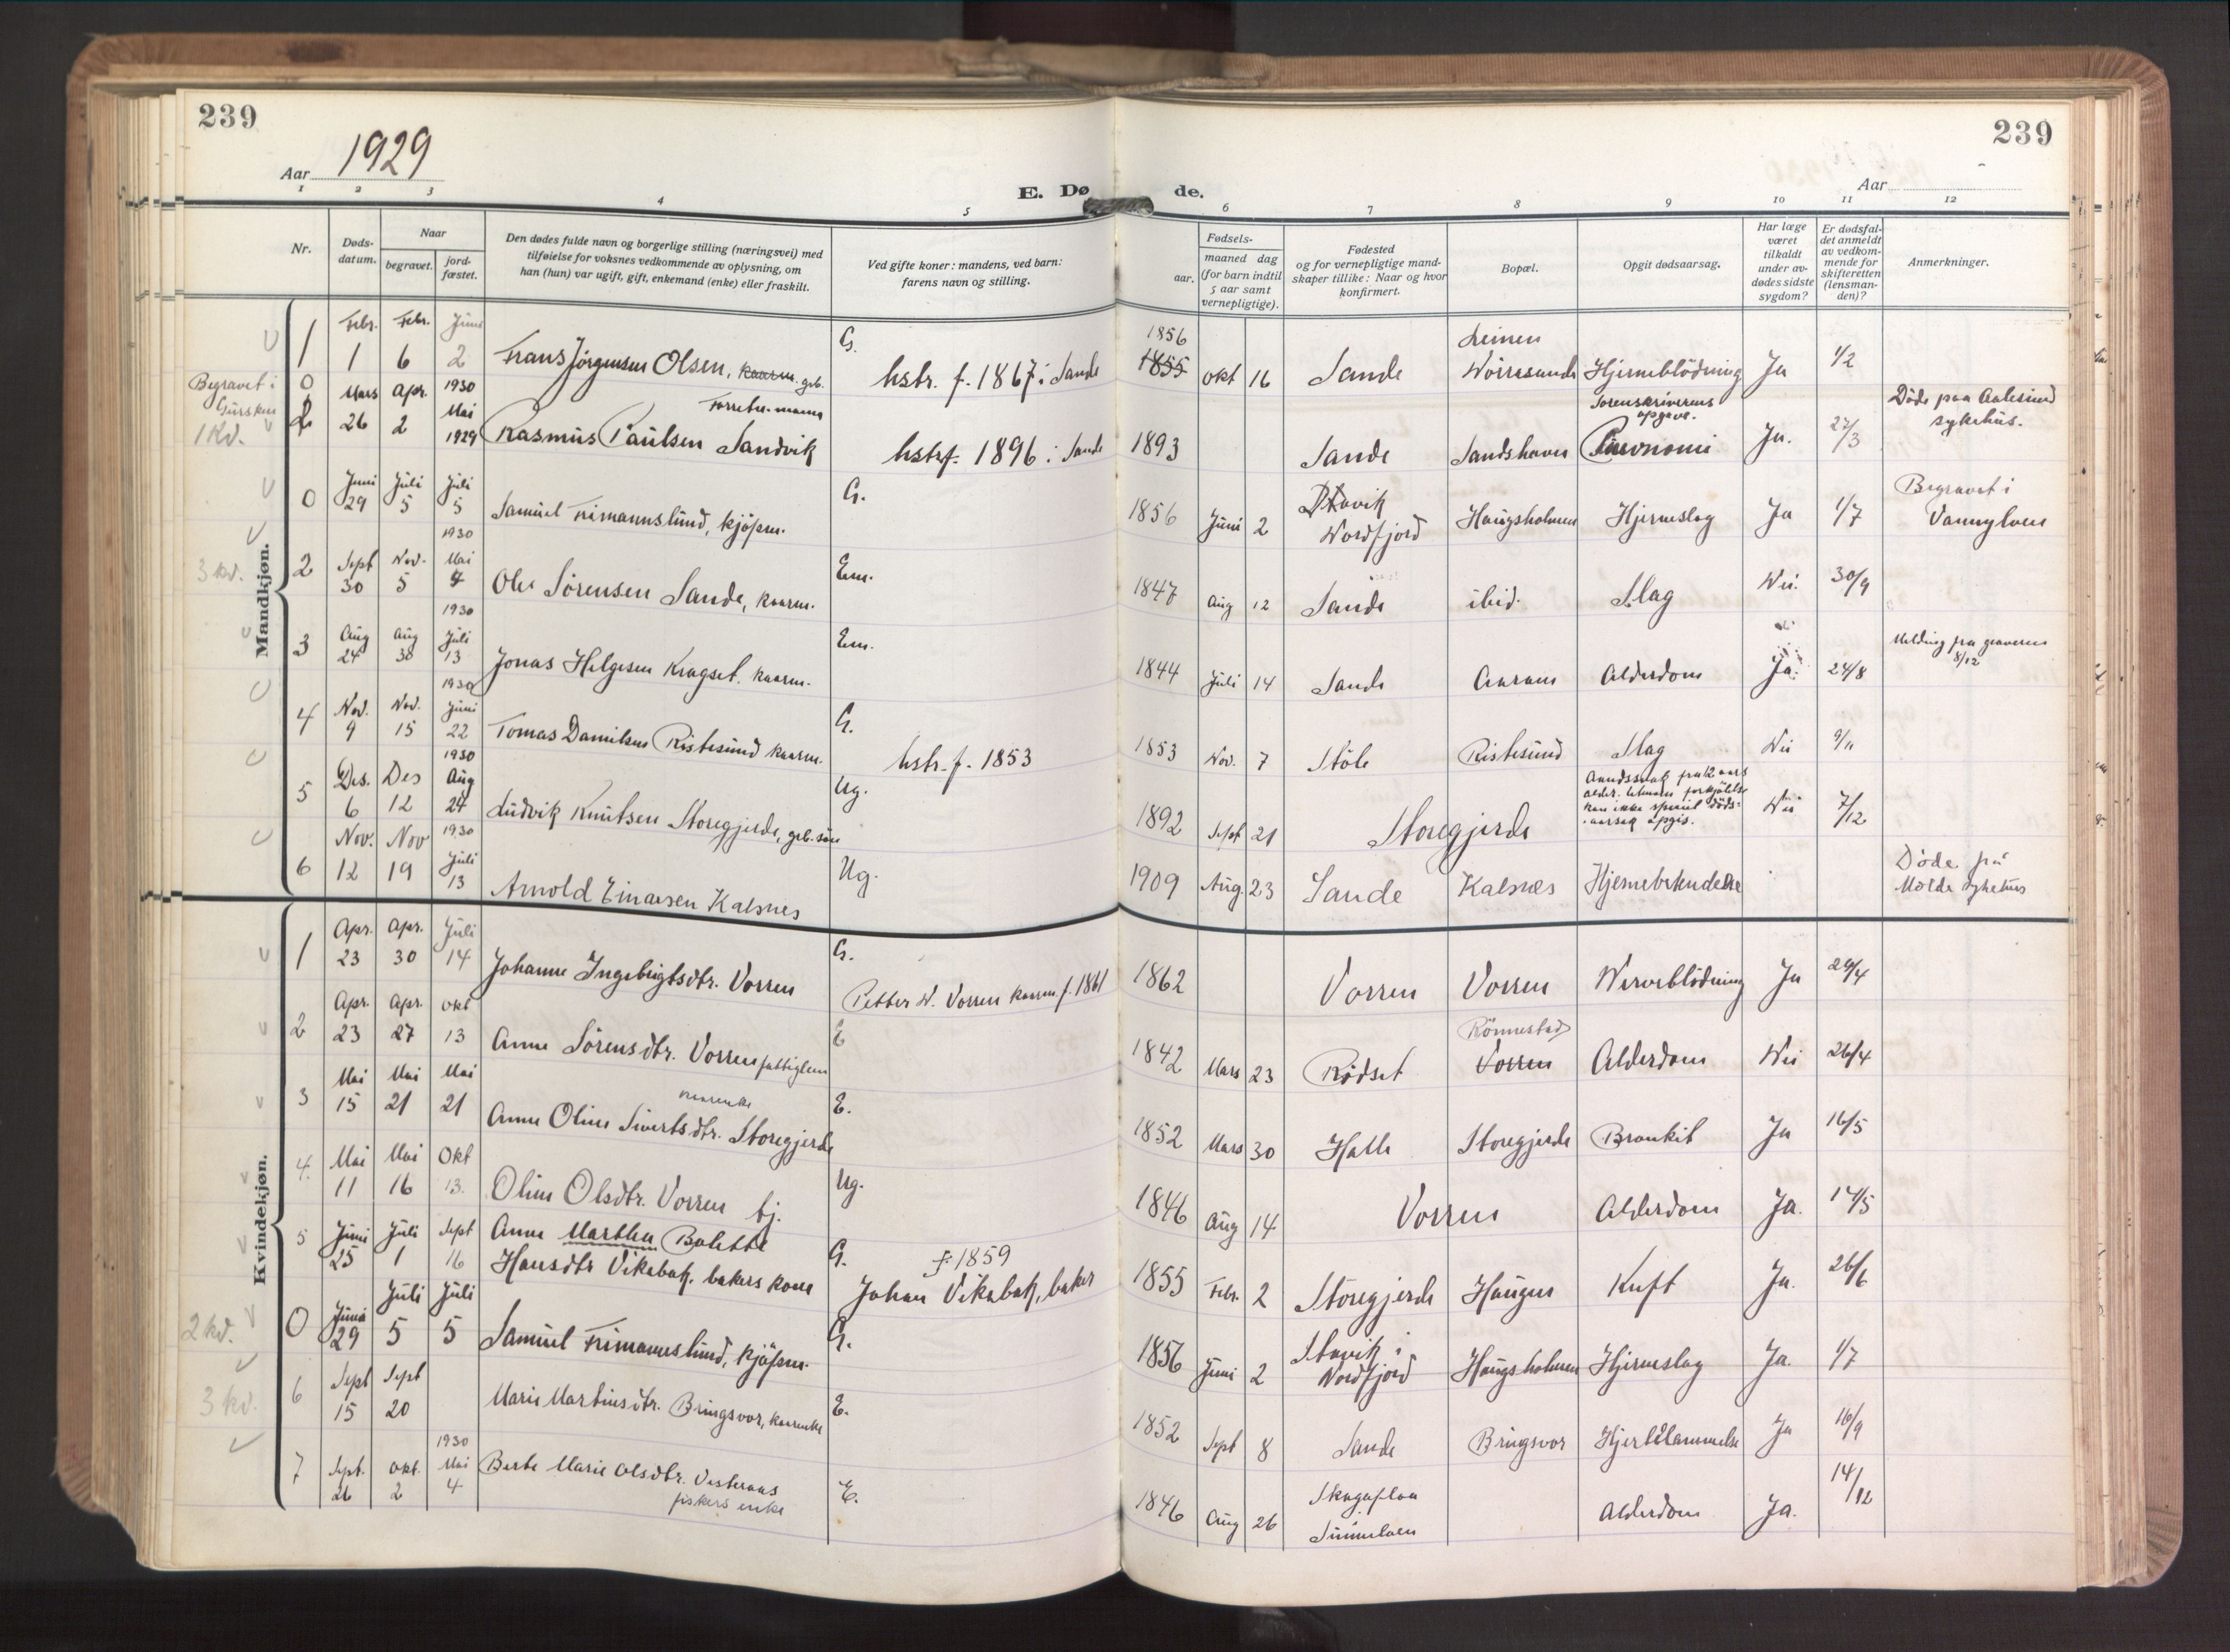 239
239
Aar 1929
E. Døde.
Aar
1 2 3 4 5 6 7 8 9 10 11 12
Nr.
Døds-datum.
Naar
begravet.
jord-fæstet.
Den dødes fulde navn og borgerlige stilling (næringsvei) med
tilføielse for voksnes vedkommende av oplysning, om
han (hun) var ugift, gift, enkemand (enke) eller fraskilt.
Ved gifte koner: mandens, ved barn:
farens navn og stilling.
Fødsels-
aar.
maaned dag
(for barn indtil
5 aar samt
vernepligtige).
Fødested
og for vernepligtige mand-
skaper tillike: Naar og hvor
konfirmert.
Bopæl.
Opgit dødsaarsag.
Har læge
været
tilkaldt
under av-
dødes sidste
sygdom?
Er dødsfal-
det anmeldt
av vedkom-
mende for
skifteretten
(lensman-
den)?
Anmerkninger.
Mandkjøn.
1 Febr. 1 Febr. 6 Juni 2 Frans Jörgensen Olsen, kaarm. G. hstr. f. 1867 i Sande 1856 1855 Okt 16 Sande Hjerneblödning Ja 1/2
Begravet i Gursken 1 Kd.
0 Mars 26 Apr. 2 1930 Mai 1929 Rasmus Paulsen Sandvik hstr f. 1896 i Sande 1893 Sande Sandshavn Sorenskriverens opgave. Ja. 27/3 Döde paa Aalesund sykehus.
0 Juni 29 Juli 5 Juli 5 Samuel Frimannslund, kjöpm. G. 1856 Juni 2 Nordfjord Haugsholmen Hjerneslag Ja 1/7 Begravet i Vannylven
3 kd.
2 Sept 30 Nov. 5 1930 Mai 4 Ole Sörensen Sande, kaarm. Em. 1847 Aug 12 Sande ibid. Slag Nei. 30/9
3 Aug 24 Aug 30 1930 Juli 13 Jonas Helgesen Kragset. kaarm. Em. 1844 Juli 14 Sande Aaram Alderdom Ja. 24/8 Melding fra graveren 8/12
4 Nov. 9 Nov. 15 1930 Juni 22 Tomas Danielsen Ristesund kaarm. G. hstr. f. 1853 1853 Nov. 7 Stöle Ristesund Slag Nei 9/11
5 Des. 6 Des 12 1930 Aug 24 Ludvik Knutsen Storegjerde, grb. sön Ug. 1892 Sept 21 Storegjerde Aandssvak fra 12 aars alder. forkjölelse kan ikke döds-aarsag opgis. Nei 7/12
6 Nov. 12 Nov 19 1930 Juli 13 Arnold Einarsen Kalsnes Ug. 1909 Aug. 23 Sande Kalsnes Hjernebetendelse Döde på Molde sykehus
Kvindekjøn.
1 Apr. 23 Apr. 30 Juli 14 Johanne Ingebrigtsdtr. Vorren G. Petter N. Vorren kaarm f. 1861 1862 Vorren Vorren Ja
2 Apr. 23 Apr. 27 Okt 13 Anne Sörensdtr. Vorren fattiglem E 1842 Mars 23 Rödset Rönnestad Vorren Alderdom Nei 26/4
3 Mai 15 Mai 21 Mai 21 Anne Oline Sivertsdtr. Storegjerde E. 1852 Mars 30 Halle Storegjerde Bronkit Ja 16/5
4. Mai 11 Mai 16 Okt 13. Oline Olsdtr. Vorren tj. Ug. 1846 Aug 14 Vorren Alderdom Ja. 14/5
5 Juni 25 Juli 1 Sept 16 Anne Marthea Bolette
Hansdtr Vikebak. bakers kone G. f. 1859
Johan Vikebak, baker 1855 Febr. 2 Storegjerde Haugen Kræft Ja. 26/6
2 kd.
0 Juni 29 Juli 5 Juli 5 Samuel Frimannslund, kjöpm. G. 1856 Juni 2 Stavik i Nordfjord Haugsholmen Hjerneslag Ja. 1/7
3 kd.
6 Sept 15 Sept 20 Marie Martinusdtr. Bringsvor, kaarenke E. 1852 Sept 8 Sande Bringsvor Hjertelammelse Ja 16/9
7 Sept. 26 Okt. 2 1930 Mai 4 Berte Marie Olsdtr. Vesteraas
fiskers enke E. 1846 Aug 26 Sunnelven Alderdom Ja. 14/12